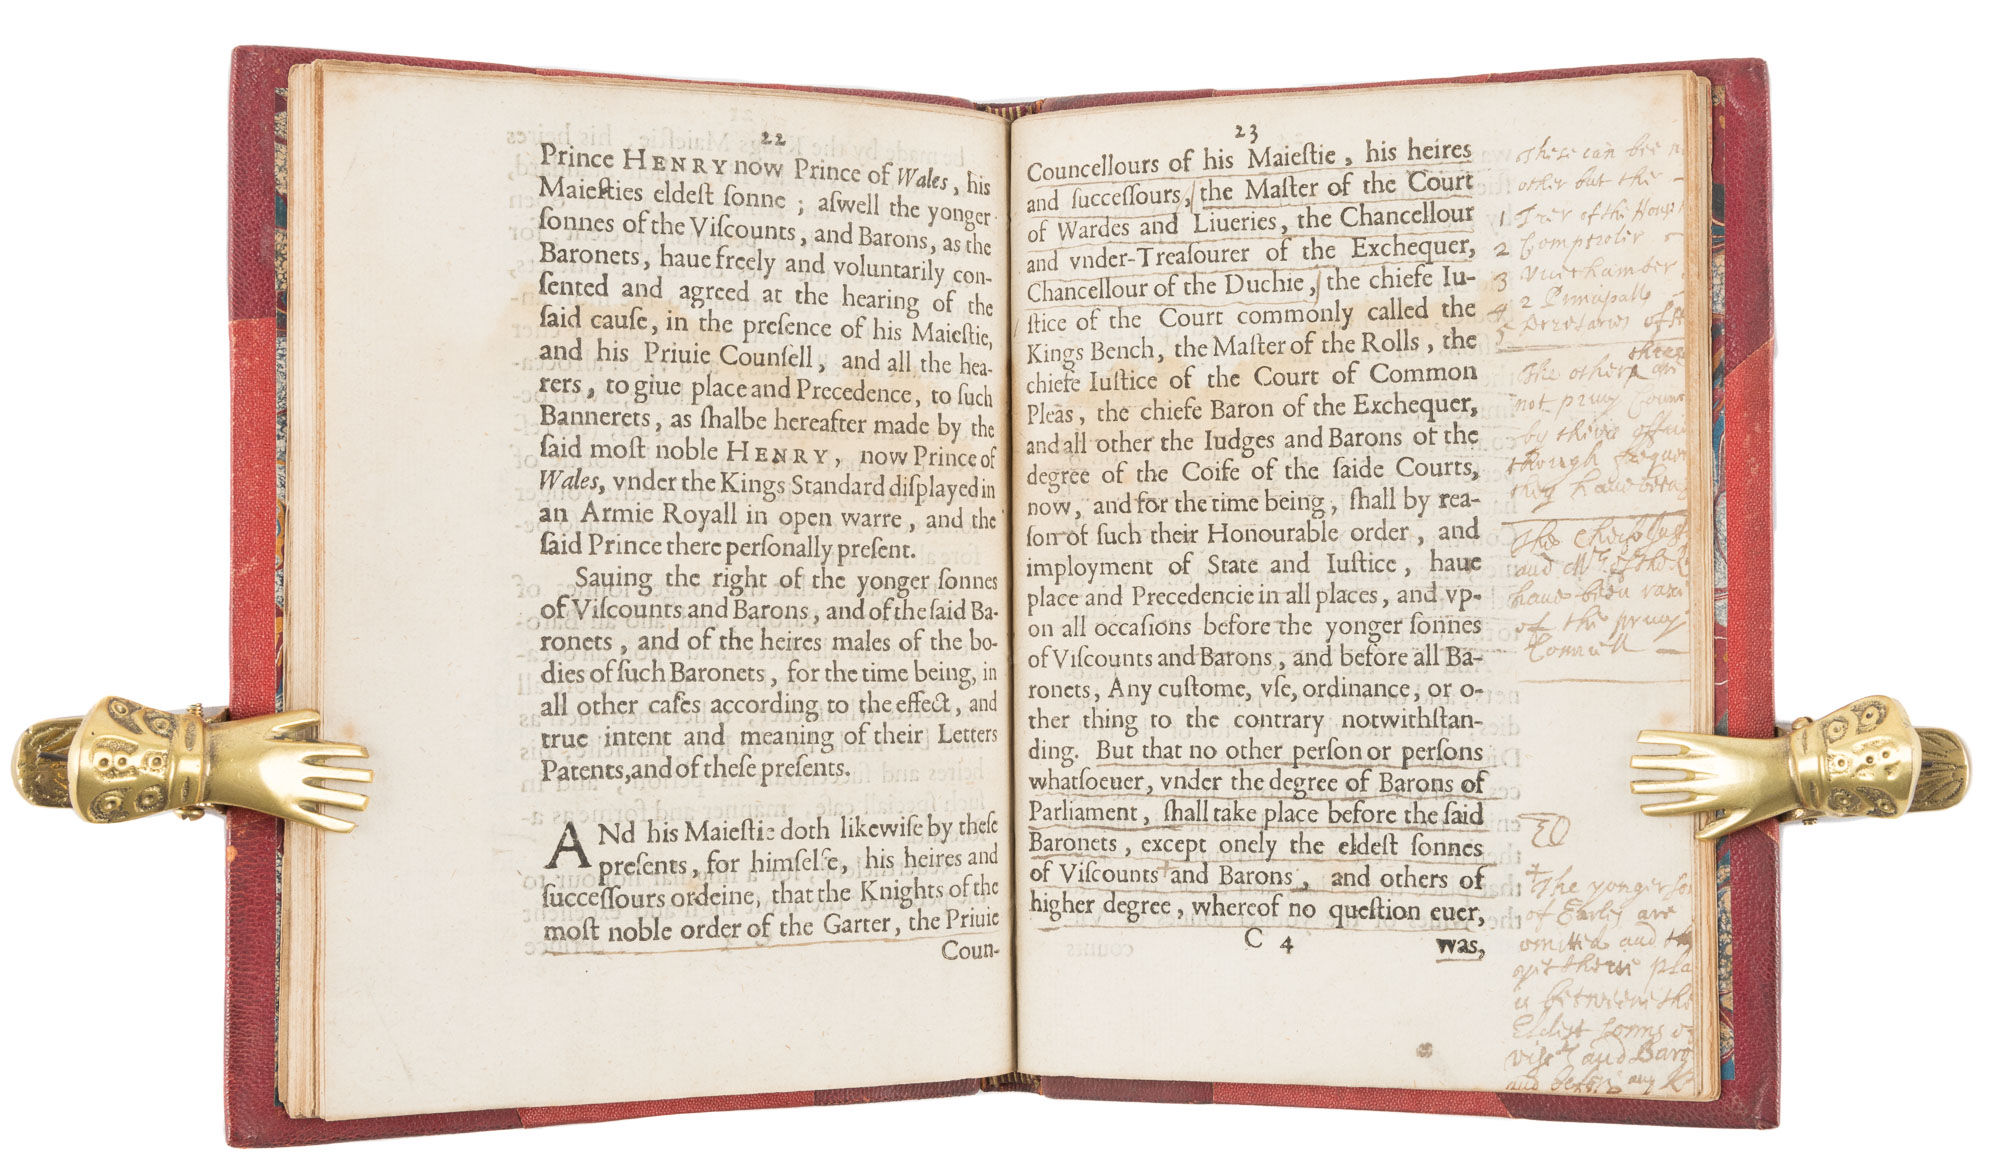 22
Prince HENRY now Prince of Wales, his
Maieſties eldeſt ſonne ; aſwell the yonger
ſonnes of the Viſcounts, and Barons, as the
Baronets, haue freely and voluntarily con-
ſented and agreed at the hearing of the
ſaid cauſe, in the preſence of his Maieſtie,
and his Priuie Counſell, and all the hea-
rers, to giue place and Precedence, to ſuch
Bannerets, as ſhalbe hereafter made by the
ſaid moſt noble HENRY, now Prince of
Wales, vnder the Kings Standard diſplayed in
an Armie Royall in open warre, and the
ſaid Prince there perſonally preſent.
Sauing the right of the yonger ſonnes
of Viſcounts and Barons, and of the ſaid Ba-
ronets, and of the heires males of the bo-
dies of ſuch Baronets, for the time being, in
all other caſes according to the effect, and
true intent and meaning of their Letters
Patents, and of theſe preſents.
ANd his Maieſtie doth likewiſe by theſe
preſents, for himſelfe, his heires and
ſucceſſours ordeine, that the Knights of the
moſt noble order of the Garter, the Priuie
Coun-
23
Councellours of his Maieſtie, his heires
and ſucceſſours, the Maſter of the Court
of Wardes and Liueries, the Chancellour
and vnder-Treaſourer of the Exchequer,
Chancellour of the Duchie, the chiefe Iu-
ſtice of the Court commonly called the
Kings Bench, the Maſter of the Rolls, the
chiefe Iuſtice of the Court of Common
Pleas, the chiefe Baron of the Exchequer,
and all other the Iudges and Barons of the
degree of the Coife of the ſaide Courts,
now, and for the time being, ſhall by rea-
ſon of ſuch their Honourable order, and
imployment of State and Iuſtice, haue
place and Precedencie in all places, and vp-
on all occaſions before the yonger ſonnes
of Viſcounts and Barons, and before all Ba-
ronets, Any cuſtome, vſe, ordinance, or o-
ther thing to the contrary notwithſtan-
ding. But that no other perſon or perſons
whatſoeuer, vnder the degree of Barons of
Parliament, ſhall take place before the ſaid
Baronets, except onely the eldeſt ſonnes
of Viſcounts and Barons, and others of
higher degree, whereof no queſtion euer,
C 4 was,
These can bee
other but the
1 of the
2 Comptroler
3 Vicechamber
4 2 Principall
5 Secretaries of
three
The other are
not privy
by
though
they have been
The
and Mr of the
have been
of the privy
The yonger
of Earles are
omitted and
yet
is betweene the
Eldest sonns
and
and before any